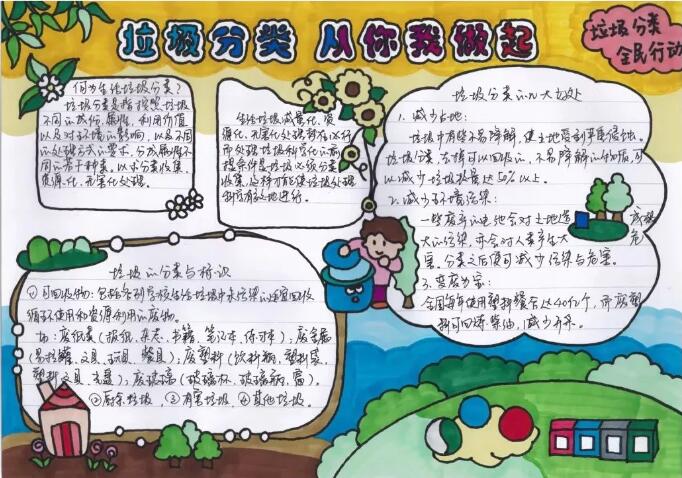 垃圾分类 从你我做起
垃圾分类
全民行动
何为生活垃圾分类？
垃圾分类是指按照垃圾
不同的成份、属性、利用价值
以及对环境的影响，以及不同
的处理方式的要求，分成属性不
同的若干种类。以求分类收集、
资源化、无害化处理。
生活垃圾减量化、资
源化、无害化处理势在必行
而处理垃圾科学化的前
提条件是垃圾必须分类
收集，这样才能使垃圾处理
科学有效地进行。
垃圾分类的几大好处
1. 减少占地：
垃圾中有些不易降解，使土地受到严重侵蚀。
垃圾分类，去掉可以回收的、不易降解的物质，可
以减少垃圾数量达50%以上。
2. 减少环境污染：
一些废弃的电池会对土地造成极
大的污染，亦会对人类产生大危
害。分类之后便可减少污染与危害。
3. 变废为宝：
全国每年使用塑料餐盒达40亿个，而废塑
料可回炼柴油，减少开采。
垃圾的分类与标识
①可回收物：包括各别学校生活垃圾中未污染的适宜回收
循环使用和资源利用的废物。
如：废纸类（报纸、杂志、书籍、笔记本、练习本）；废金属
（易拉罐、文具、玩具、餐具）；废塑料（饮料瓶、塑料袋、
塑料文具、光盘）；废玻璃（玻璃杯、玻璃瓶、窗）。
②厨余垃圾，③有害垃圾，④其他垃圾。